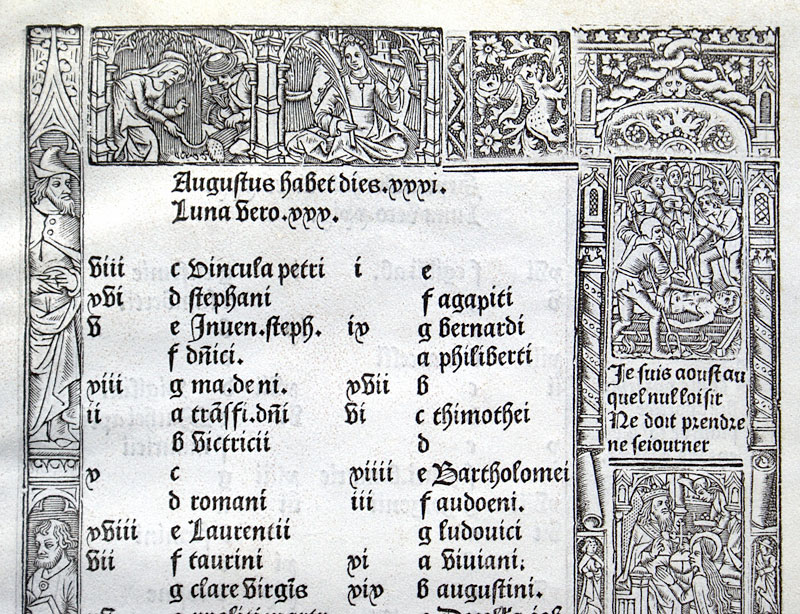 Augustus habet dies.xxxi.
Luna vero.xxx.
viii c Vincula petri
xvi d stephani
v e Inven.steph.
f dñici.
xiii g ma.de ni.
ii a trãsfi.dñi
b victricii
x c
d romani
xviii e Laurentii
vii f taurini
g clare virgĩs
i e
f agapiti
ix g bernardi
a philiberti
xvii b
vi c thimothei
d
xiiii e Bartholomei
iii f audoeni.
g ludovici
xi a viviani.
xix b augustini.
Je suis aoust au
quel nul loisir
Ne doit prendre
ne seiourner